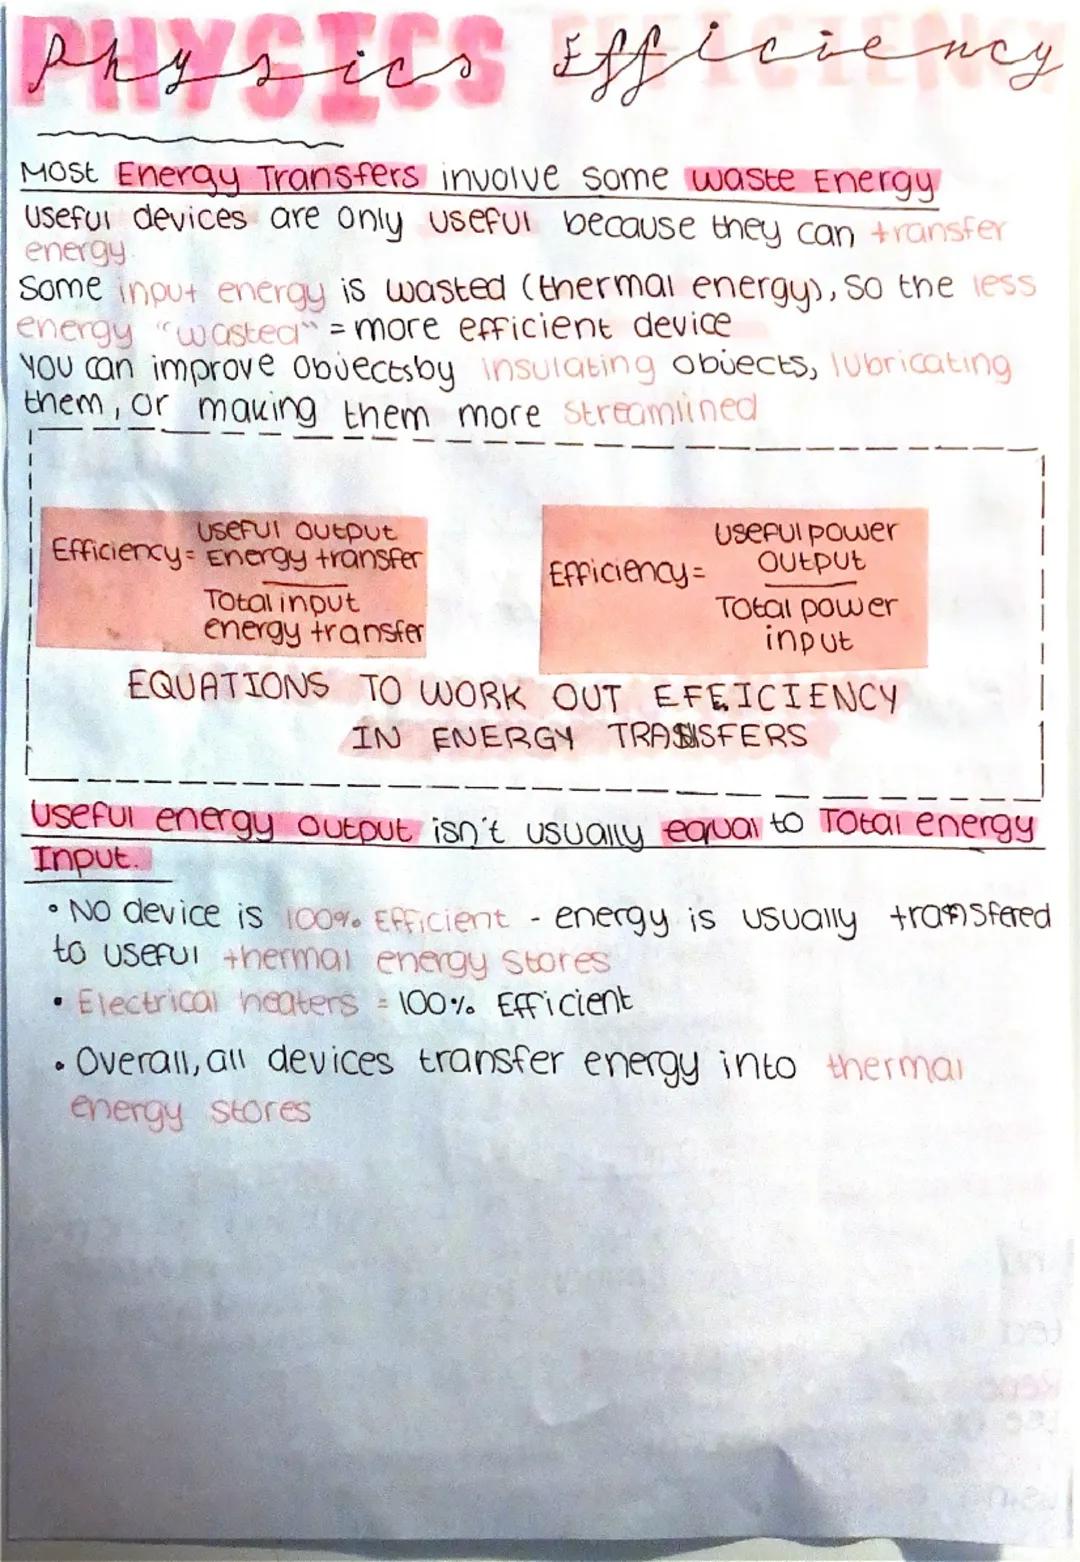 PHYSICS EFFICIENCY
Physics Efficiency
Most Energy Transfers involve some waste Energy
Useful devices are only useful because they can transfer
energy.
Some input energy is wasted (thermal energy), so the less
energy "wasted" = more efficient device
You can improve objectsby insulating objects, lubricating
them, or making them more streamlined
Useful output
Efficiency = Energy transfer
Total input
energy transfer
Useful power
Efficiency = output
Total power
input
EQUATIONS TO WORK OUT EFFICIENCY
IN ENERGY TRANSFERS
Useful energy output isn't usually equal to Total energy
Input.
• No device is 100% Efficient - energy is usually transfered
to useful thermal energy stores
• Electrical heaters = 100% Efficient
• Overall, all devices transfer energy into thermal
energy stores